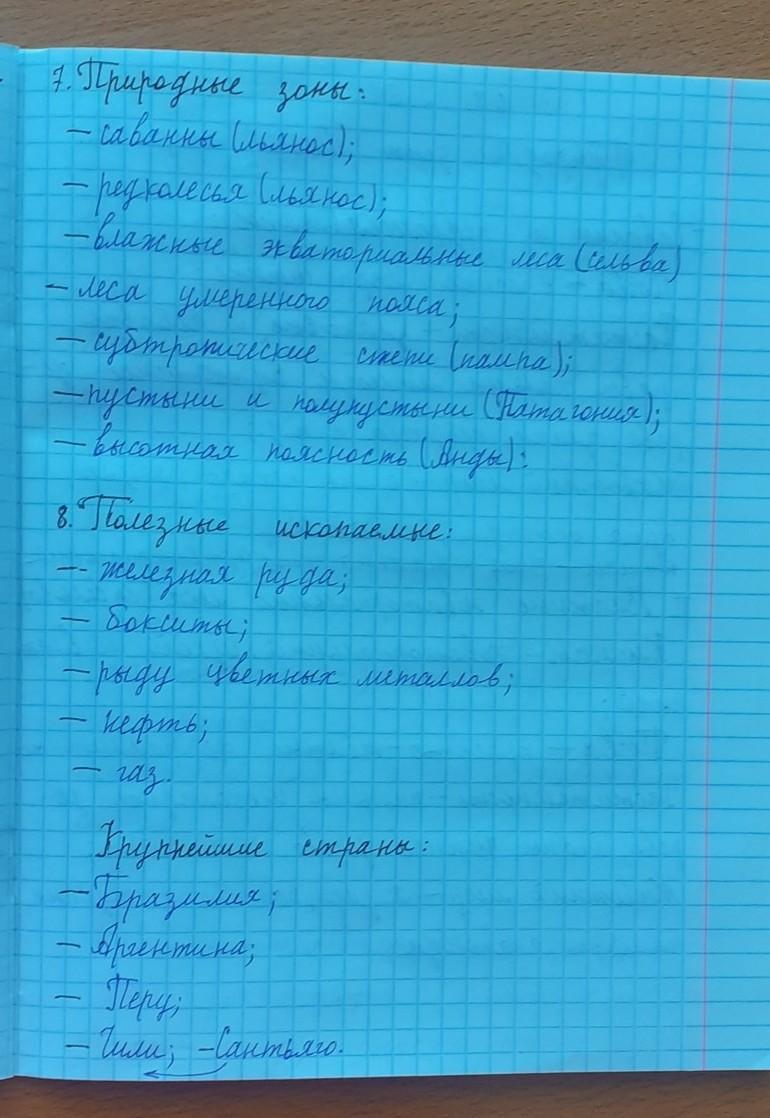 7. Природные зоны:
– саванны (льянос);
– редколесья (льянос);
– влажные экваториальные леса (сельва)
– леса умеренного пояса;
– субтропические степи (пампа);
– пустыни и полупустыни (Патагония);
– высотная поясность (Анды):
8. Полезные ископаемые:
– железная руда;
– бокситы;
– рыду цветных металлов;
– нефть;
– газ.
Крупнейшие страны:
– Бразилия;
– Аргентина;
– Перу;
– Чили; – Сантьяго.